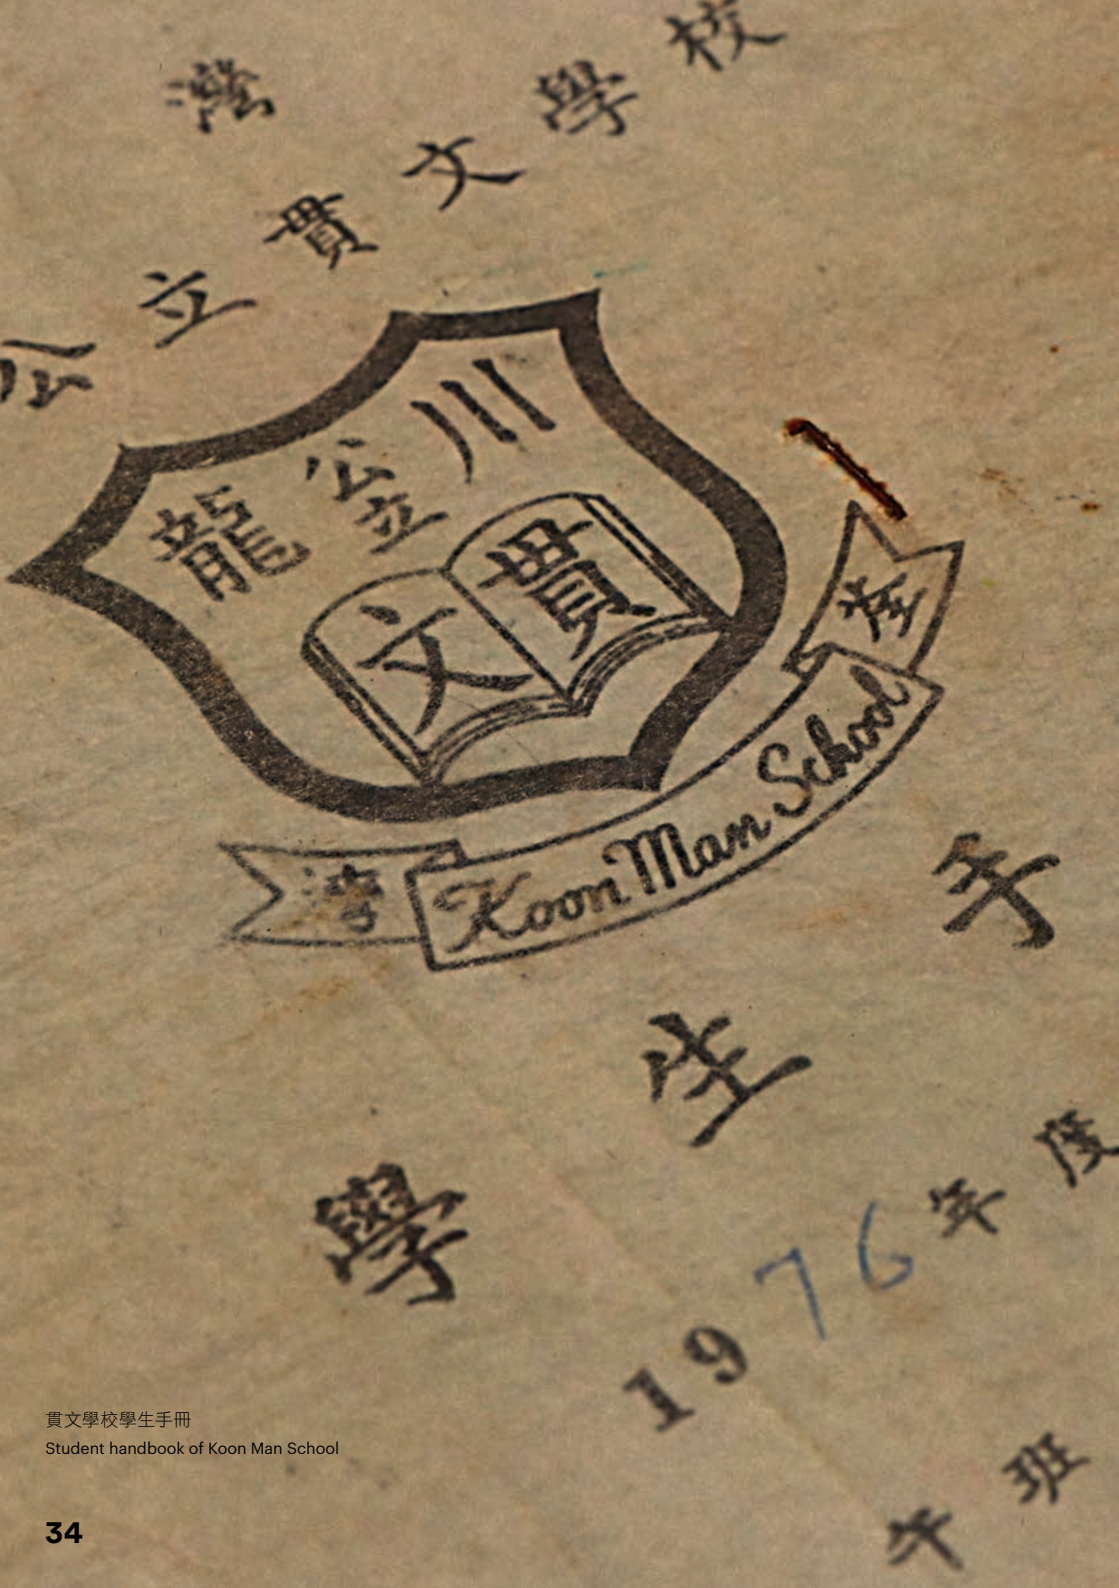 灣
公立貫文學校
川公立龍
貫文
荃湾
Koon Man School
學生手
1976年度
午班
貫文學校學生手冊
Student handbook of Koon Man School
34